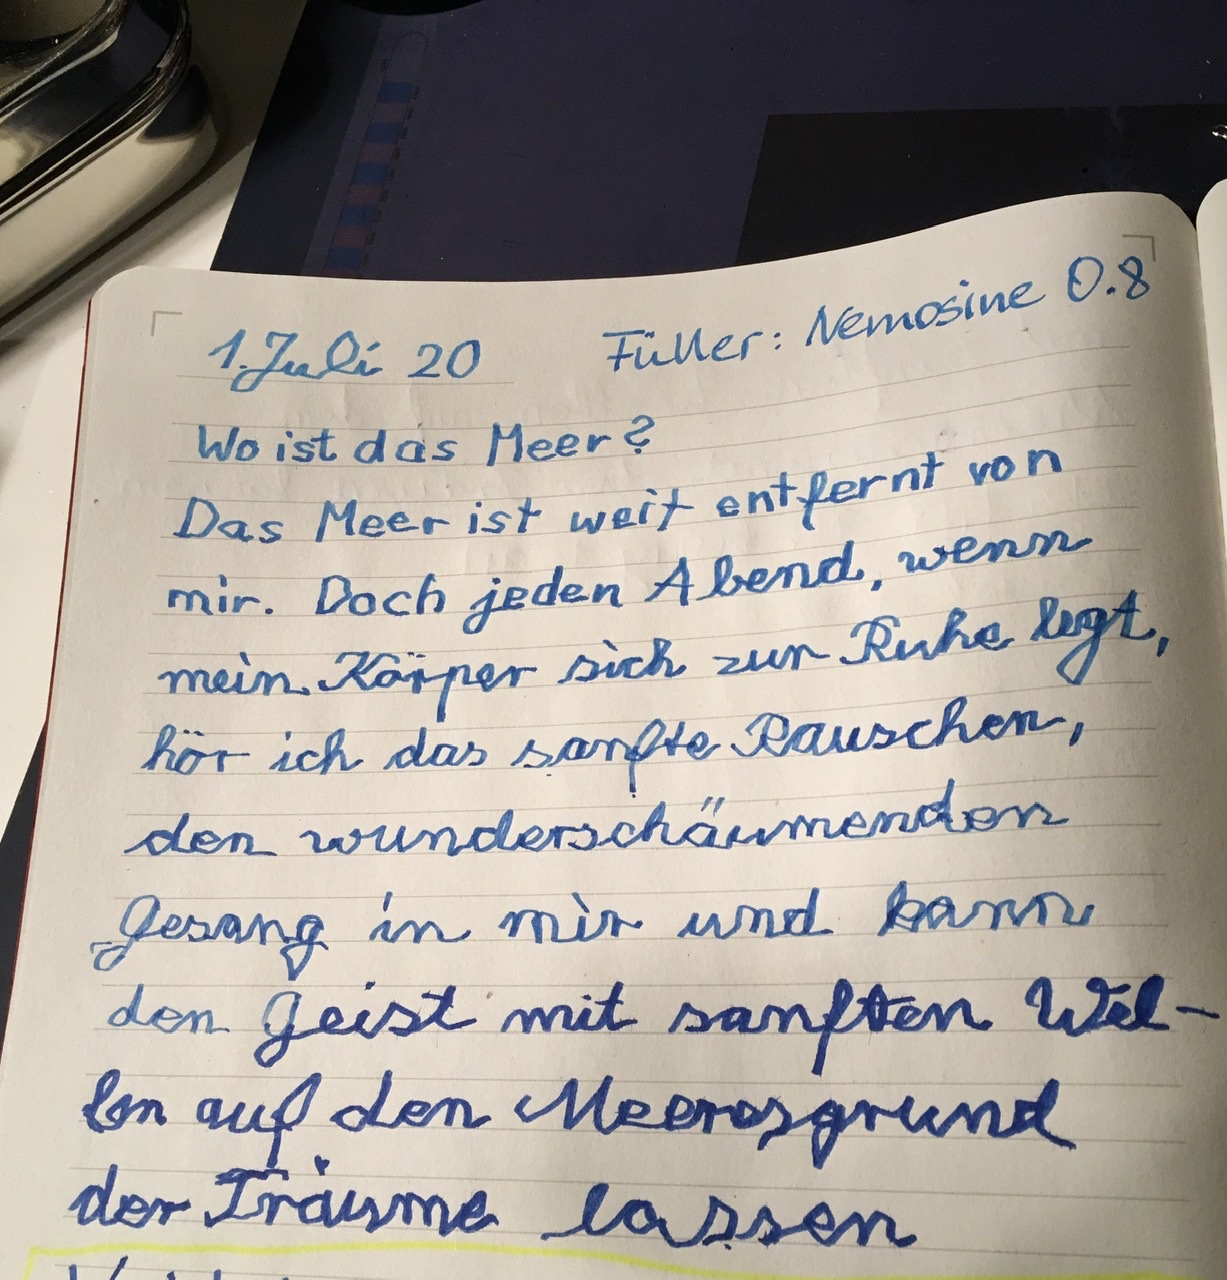 1. Juli 20 Füller: Nemosine 0.8
Wo ist das Meer?
Das Meer ist weit entfernt von
mir. Doch jeden Abend, wenn
mein Körper sich zur Ruhe legt,
hör ich das sanfte Rauschen,
den wunderschäumenden
Gesang in mir und kann
den Geist mit sanften Wel-
len auf den Meeresgrund
der Träume lassen